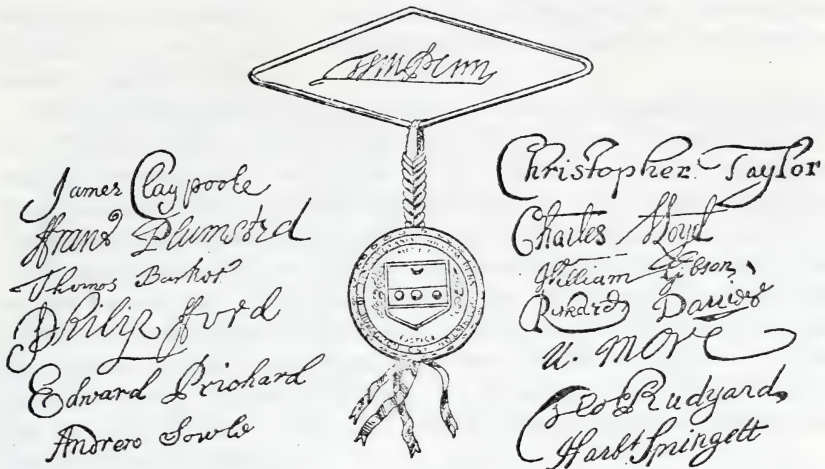 Wm Penn
James Claypoole
Franc Plumsted
Thomas Barker
Philip fford
Edward Prichard
Andrew Sowle
MERCY
JUSTICE
Christopher Taylor
Charles Lloyd
William Gibson
Richard Davies
N. More
Geo: Rudyard
Harbt Springett